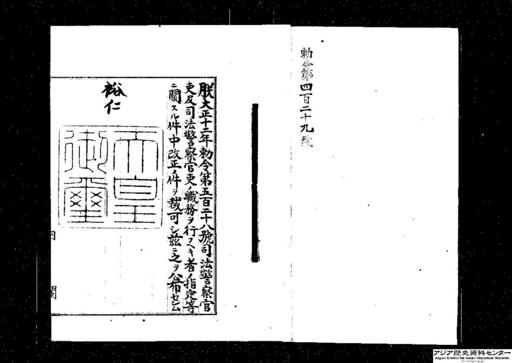 勅令第四百二十九號
朕大正十二年勅令第五百二十八號司法警察官
吏及司法警察官吏ノ職務ヲ行フヘキ者ノ指定等
ニ關スル件中改正ノ件ヲ裁可シ茲ニ之ヲ公布セシム
裕仁
天皇
御璽
内閣
アジア歴史資料センター
Japan Center for Asian Historical Records